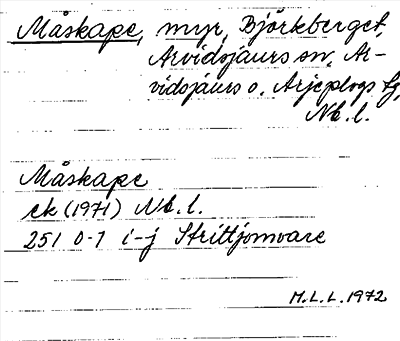 Måskape, myr, Björkberget,
Arvidsjaurs sn, Ar-
vidsjaurs o. Arjeplogs tg,
Nb. l.
Måskape
ek (1971) Nb. l.
251 0-1 i-j Strittjomvare
M.L.L. 1972